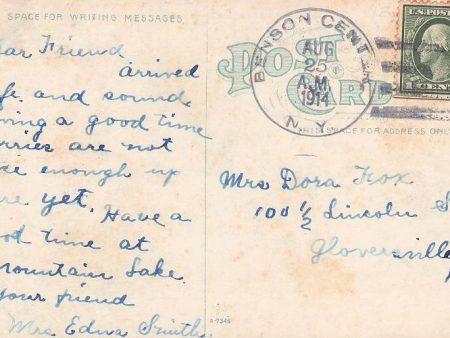 SPACE FOR WRITING MESSAGES.
ear Friend
arrived
fe and sound.
ing a good time
erries are not
ce enough up
re yet. Have a
od time at
ountain Lake
your friend
Mrs Edna Smith.
POST
CARD
BENSON CENTER
AUG
25
A.M.
1914
N.Y.
U.S. POSTAGE
CENT
HIS SPACE FOR ADDRESS ONL
Mrs Dora Fox
100 1/2 Lincoln S
Gloversville
A-7345